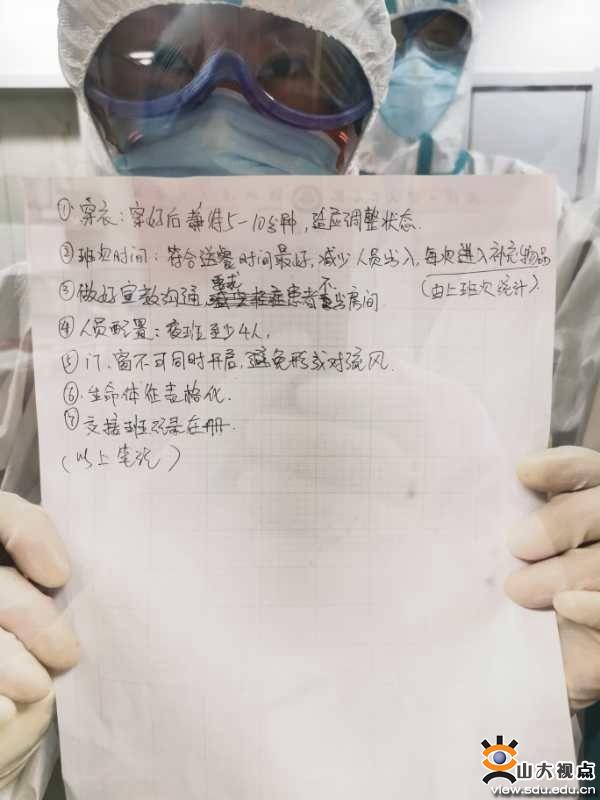 ①穿衣：穿好后静待5-10分钟，适应调整状态.
②班次时间：符合送餐时间最好，减少人员出入，每次进入补充物品
(由上班次统计)
③做好宣教沟通，要求患者不出房间
④人员配置：夜班至少4人，
⑤门、窗不可同时开启，避免形成对流风.
⑥生命体征表格化.
⑦交接班记录在册.
(以上笔记)
山大视点
view.sdu.edu.cn